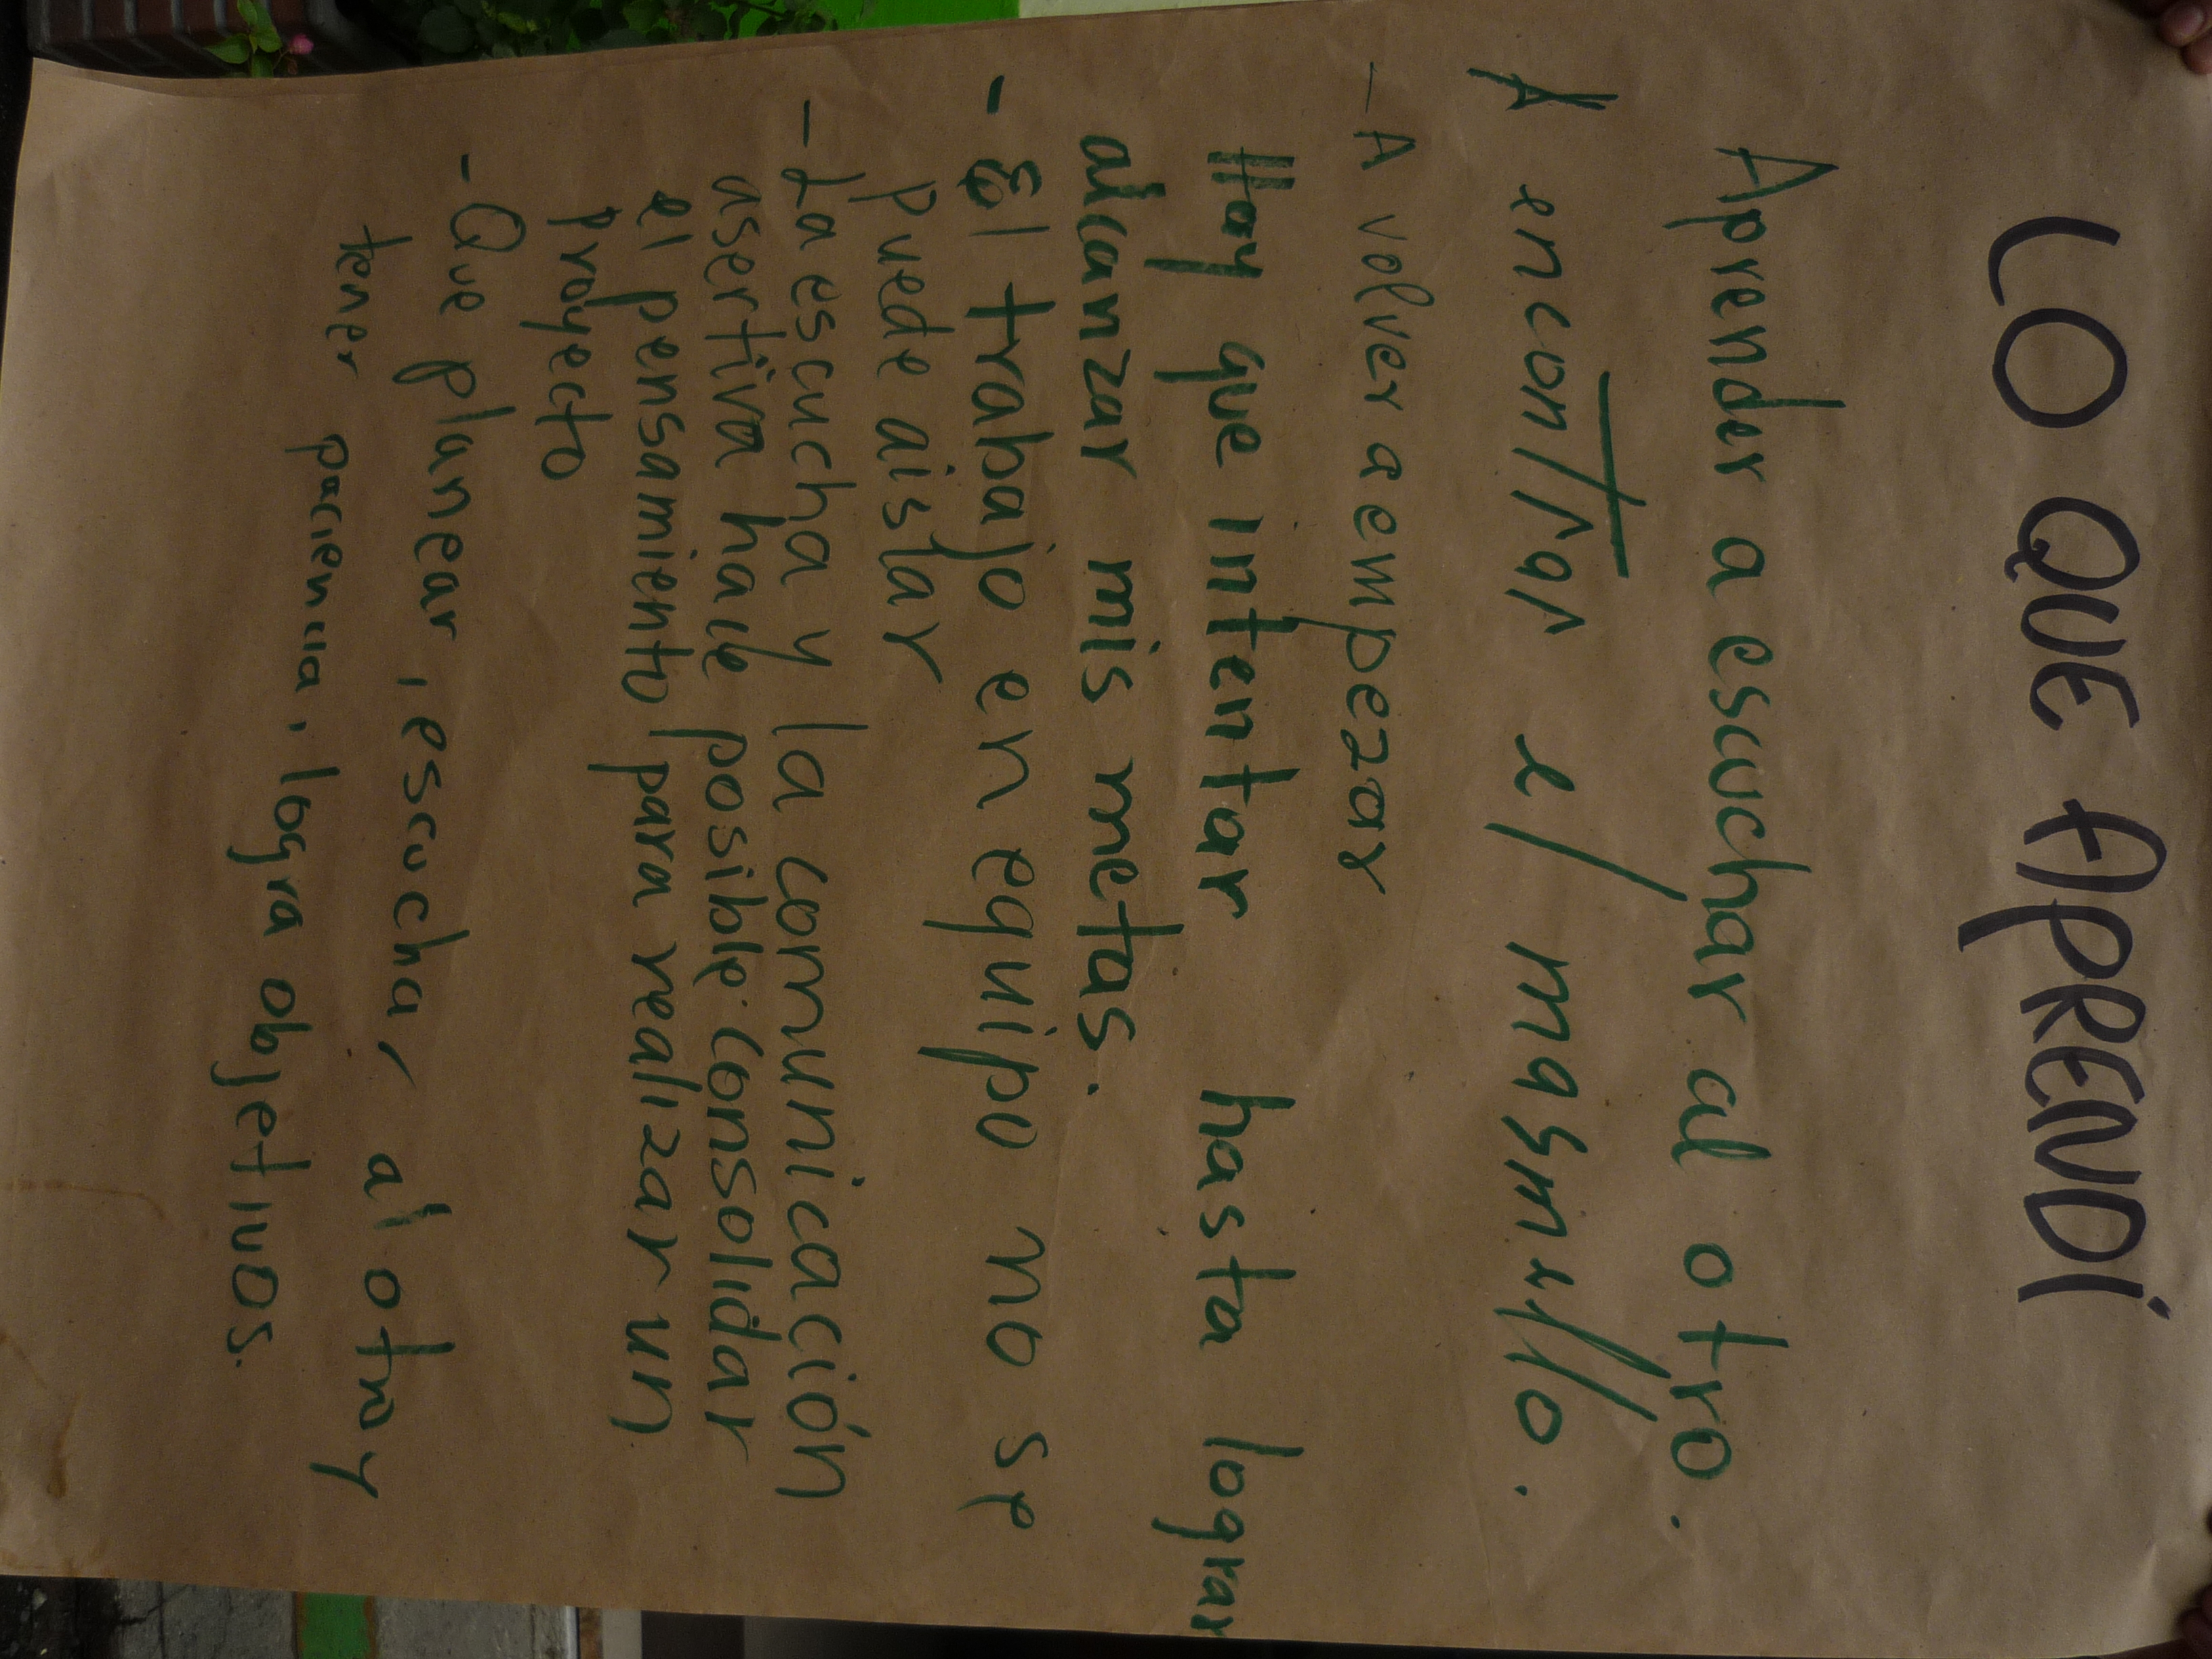 LO QUE APRENDÍ
Aprender a escuchar al otro.
A encontrar el masmello.
- A volver a empezar
Hay que intentar hasta lograr
alcanzar mis metas.
- El trabajo en equipo no se
puede aislar
- La escucha y la comunicación
asertiva hace posible consolidar
el pensamiento para realizar un
Proyecto
- Que planear, escuchar al otro y
tener paciencia, logra objetivos.